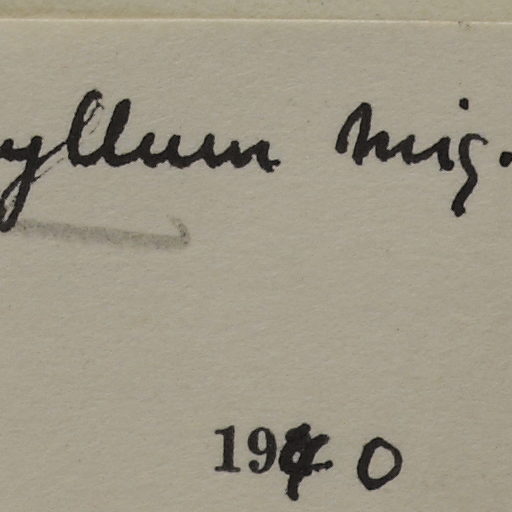 yllum mig.
1940